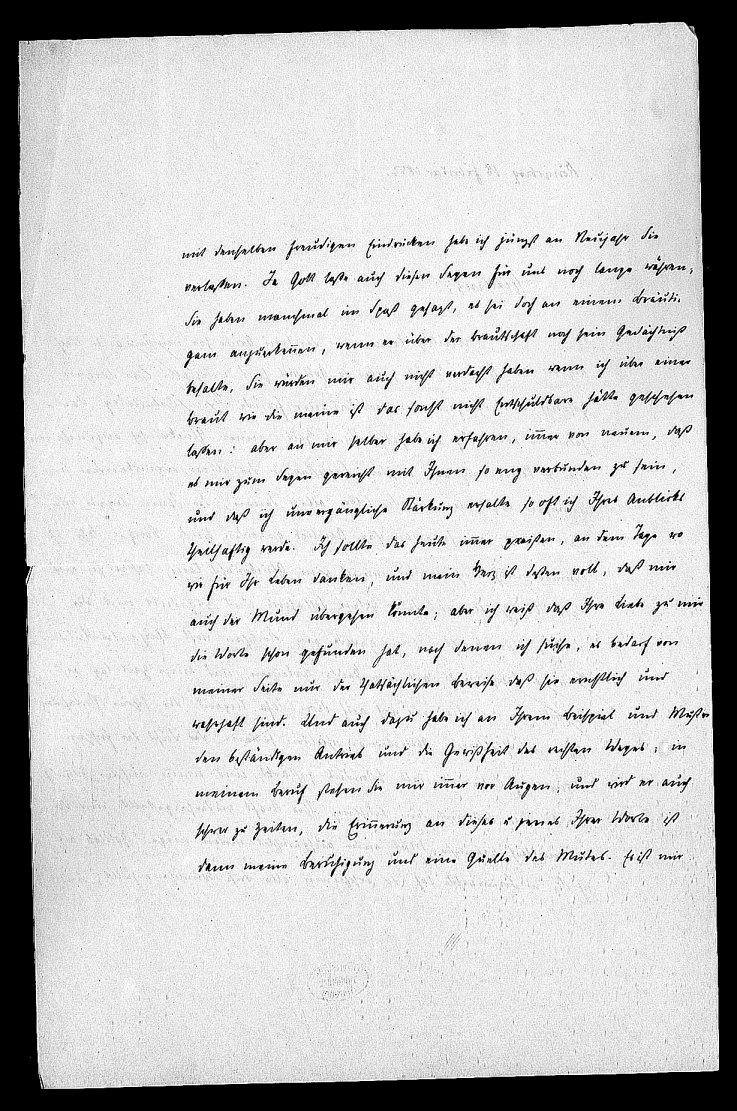 mit denselben freudigen Eindrücken habe ich jüngst an Neujahr Sie
verlassen. Ja Gott lasse auch diesen Segen für uns noch lange währen.
Sie haben manchmal im Spaß gesagt, es sei doch an einem Bräuti-
gam anzuerkennen, wenn er über der Brautschaft noch sein Gedächtniß
behalte, Sie würden mir auch nicht verdacht haben wenn ich über einer
Braut wie die meine ist das sonst nicht Entschuldbare hätte geschehen
lassen: aber an mir selber habe ich erfahren, immer von neuem, daß
es mir zum Segen gereicht mit Ihnen so eng verbunden zu sein,
und daß ich unvergängliche Stärkung erhalte so oft ich Ihres Anblicks
theilhaftig werde. Ich sollte das heute immer preisen, an dem Tage wo
wir für Ihr Leben danken, und mein Herz ist dessen voll, daß mir
auch der Mund übergehen könnte; aber ich weiß daß Ihre Liebe zu mir
die Worte schon gefunden hat, nach denen ich suche, es bedarf von
meiner Seite nur der thatsächlichen Beweise daß sie ernstlich und
wahrhaft sind. Und auch dazu habe ich an Ihrem Beispiel und Muster
den beständigen Antrieb und die Gewißheit des rechten Weges; in
meinem Beruf stehen Sie mir immer vor Augen, und wird er auch
schwer zu Zeiten, die Erinnerung an dieses u jenes Ihrer Worte ist
dann meine Beruhigung und eine Quelle des Mutes. Es ist mir